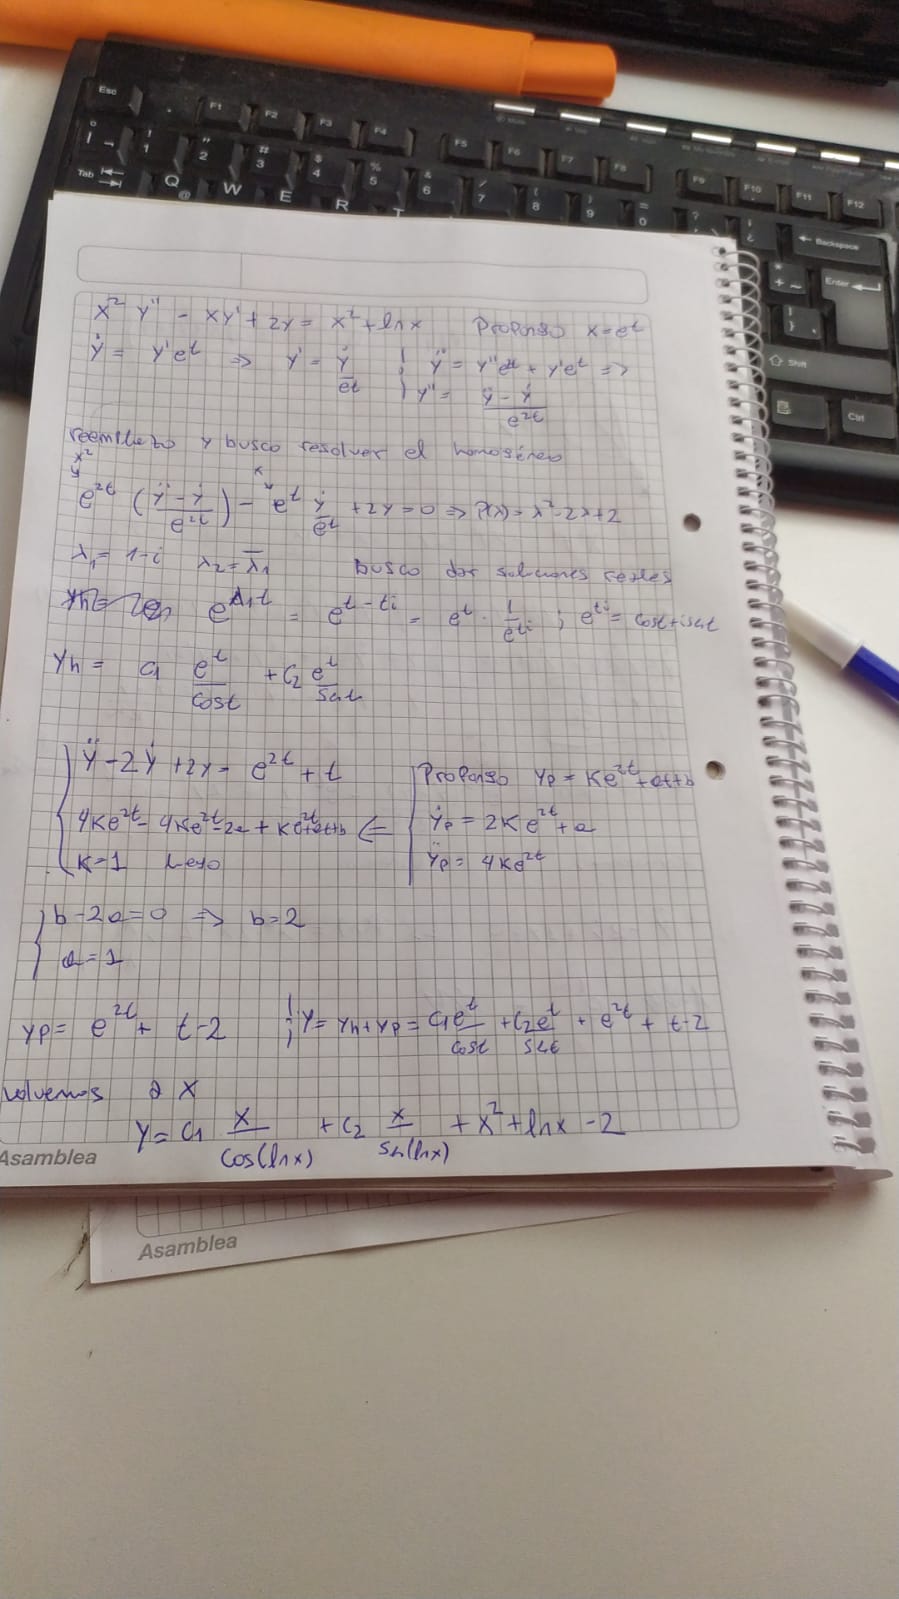 Esc F1 F2 F3 F4 F5 F6 F7 F8 F9 F10 F11 F12
1 2 3 4 5 6 7 8 9 0 Backspace
Tab Q W E R T Enter
@
Shift
Ctrl
x² y'' - xy' + 2y = x² + lnx Propongo x=e^t
ẏ = y'e^t => y' = ẏ/e^t ; ÿ = y''e^2t + y'e^t =>
y'' = (ÿ - ẏ)/e^2t
reemplazo y busco resolver el homogéneo
x² x
e^2t ((ÿ - ẏ)/e^2t) - e^t ẏ/e^t + 2y = 0 => P(λ) = λ² - 2λ + 2
λ₁ = 1-i λ₂ = λ̄₁ busco dar soluciones reales
e^λ₁t = e^(t-ti) = e^t · 1/e^ti ; e^ti = cost + isent
Yh = C₁ e^t/cost + C₂ e^t/sent
ÿ - 2ẏ + 2y = e^2t + t Propongo Yp = Ke^2t + at+b
4Ke^2t - 4Ke^2t - 2a + Ke^2t + at+b <= ẏp = 2Ke^2t + a
K=1 Luego ÿp = 4Ke^2t
b - 2a = 0 => b = 2
a = 1
yp = e^2t + t - 2 ; Y = Yh + Yp = C₁e^t/cost + C₂e^t/sent + e^2t + t - 2
volvemos a x
Y = C₁ x/cos(lnx) + C₂ x/sn(lnx) + x² + lnx - 2
Asamblea
Asamblea